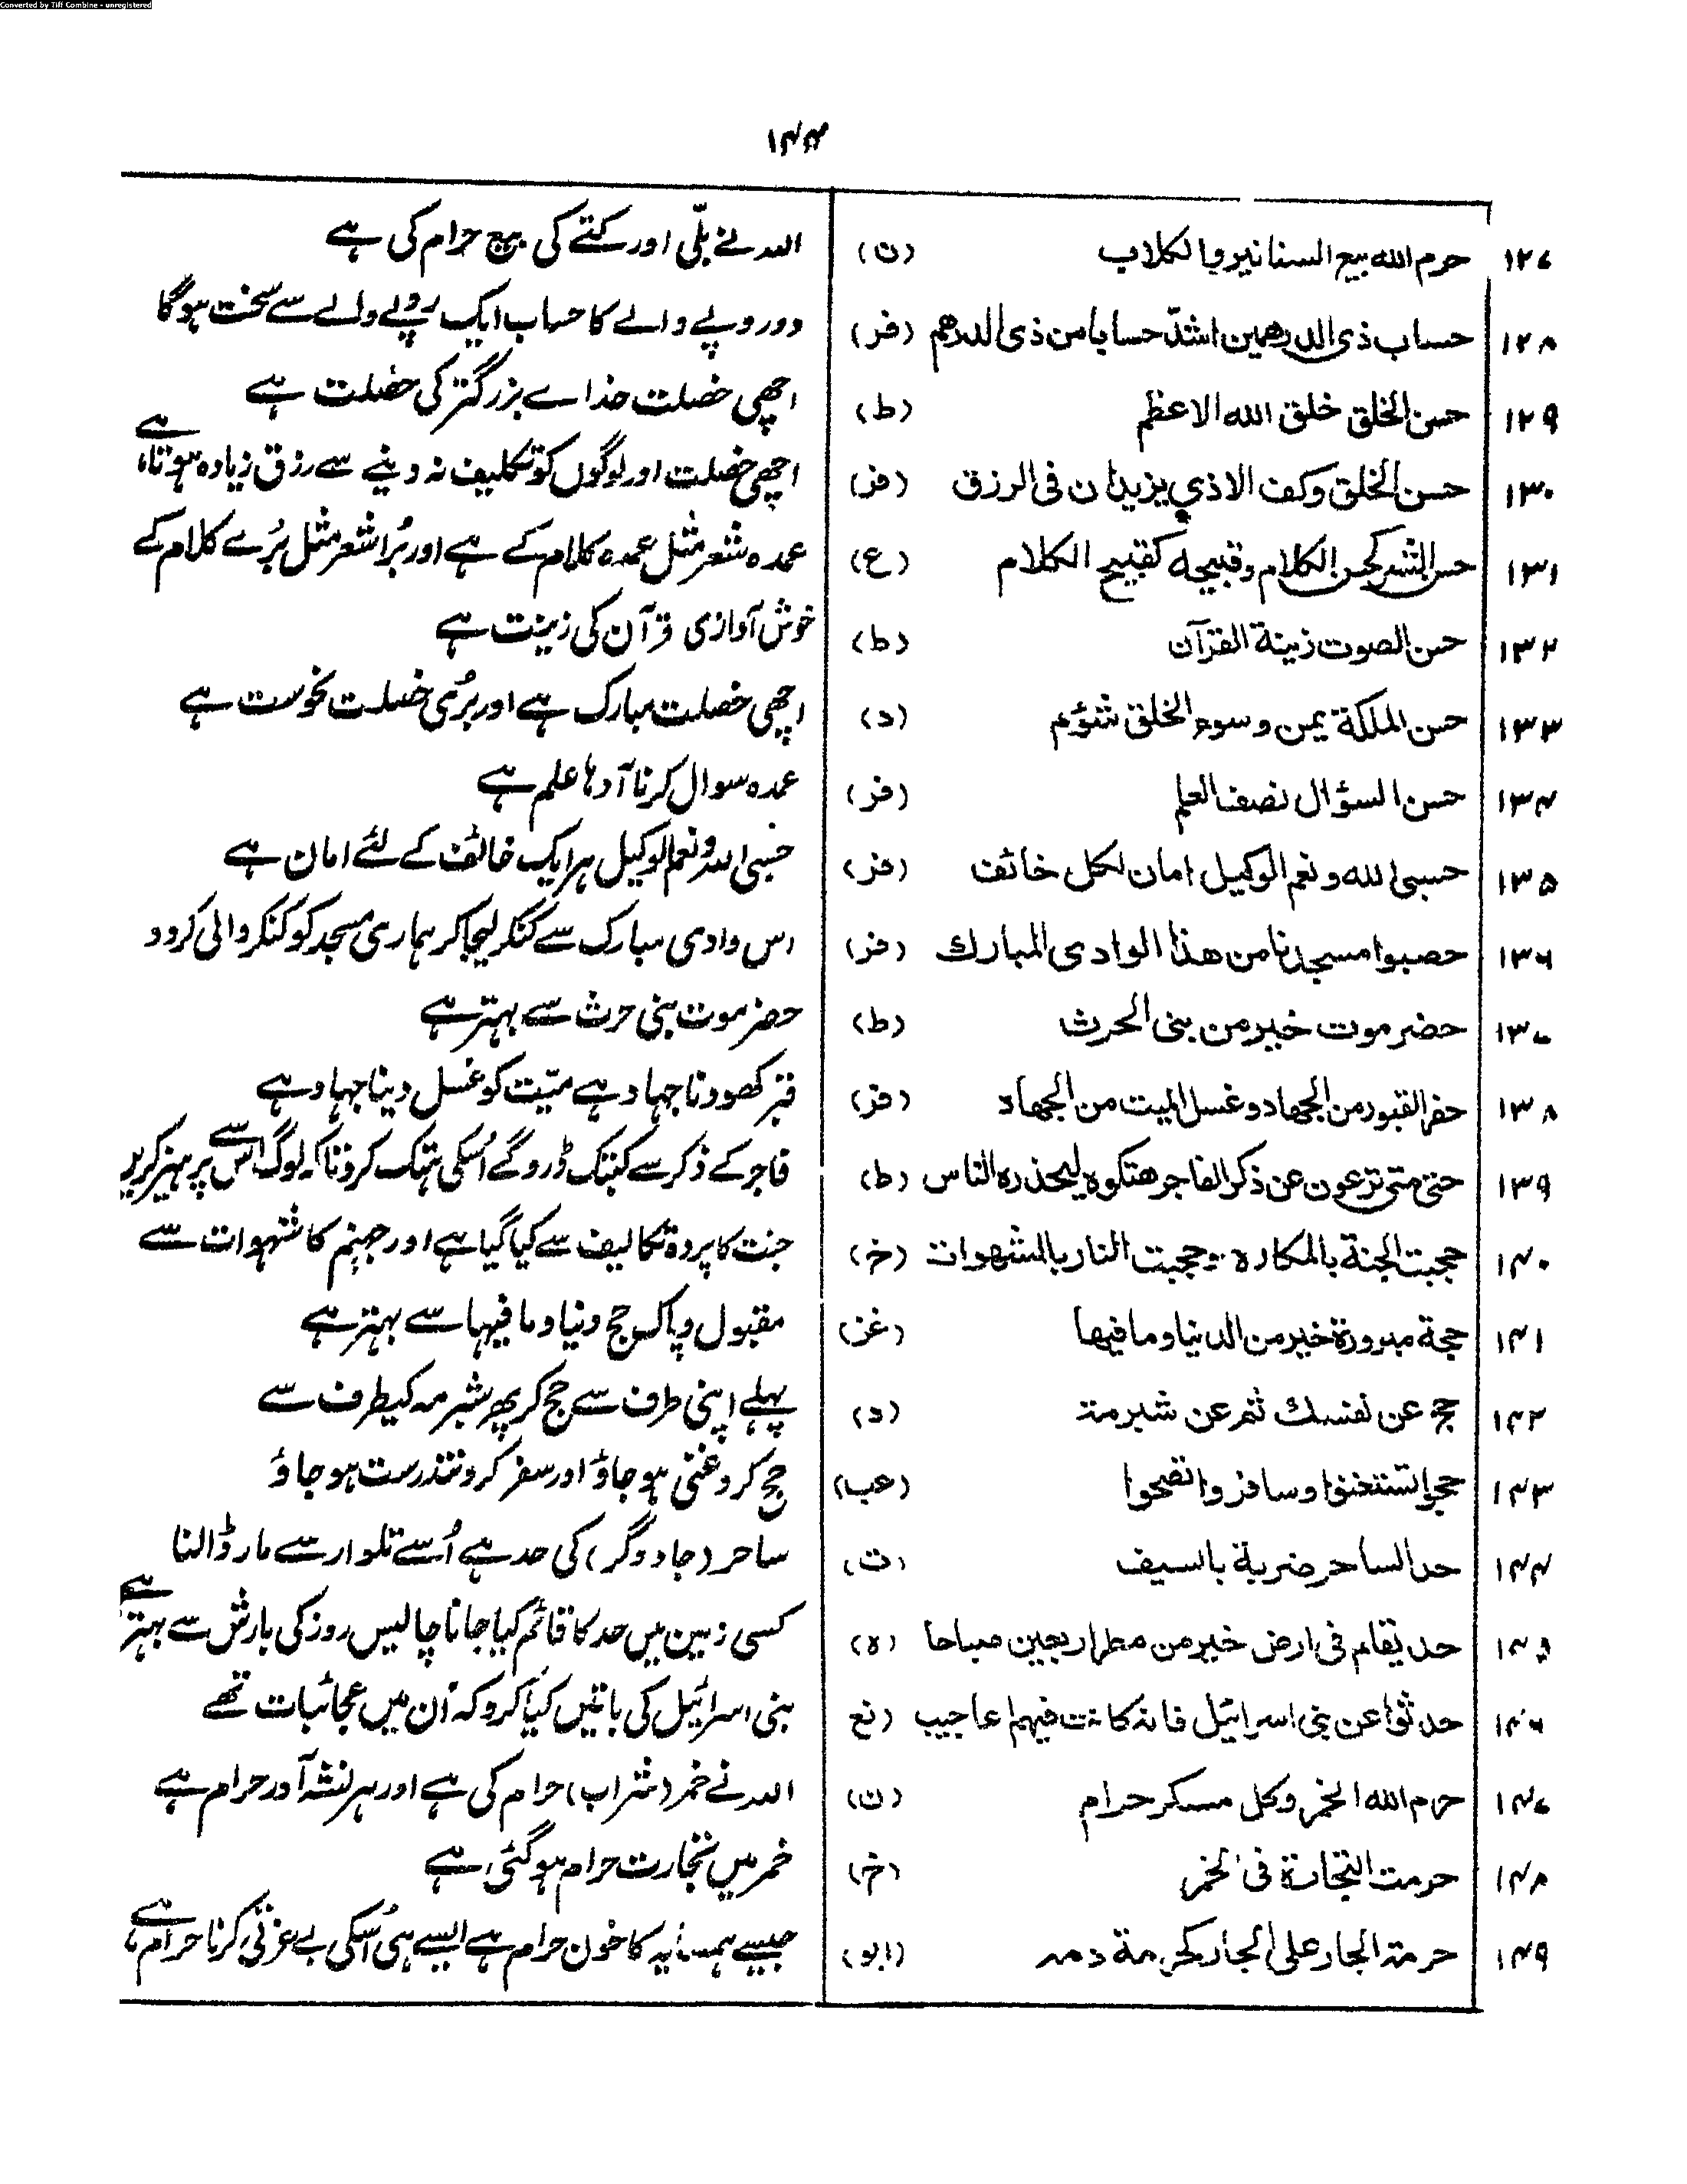 Converted by Tiff Combine - unregistered
۱۴۴
۱۲۷ حرم الله بيع السنانير والكلاب (ن) اللہ نے بلّی اور کتے کی بیع حرام کی ہے
۱۲۸ حساب ذى الدرهمين اشدّ حسابا من ذى الدرهم (فر) دو روپے والے کا حساب ایک روپے والے سے سخت ہوگا
۱۲۹ حسن الخلق خلق الله الاعظم (ط) اچھی خصلت خداے بزرگتر کی خصلت ہے
۱۳۰ حسن الخلق وكف الاذي يزيدان فى الرزق (فر) اچھی خصلت اور لوگوں کو تکلیف نہ دینے سے رزق زیادہ ہوتا ہے
۱۳۱ حسن الشعر كحسن الكلام وقبيحه كقبيح الكلام (ع) عمدہ شعر مثل عمدہ کلام کے ہے اور بُرا شعر مثل بُرے کلام کے
۱۳۲ حسن الصوت زينة القرآن (ط) خوش آوازی قرآن کی زینت ہے
۱۳۳ حسن الملكة يمن وسوء الخلق شؤم (د) اچھی خصلت مبارک ہے اور بُری خصلت نحوست ہے
۱۳۴ حسن السؤال نصف العلم (فر) عمدہ سوال کرنا آدہا علم ہے
۱۳۵ حسبى الله ونعم الوكيل امان لكل خائف (فر) حسبی اللہ ونعم الوکیل ہر ایک خائف کے لئے امان ہے
۱۳۶ حصبوا مسجدنا من هذا الوادى المبارك (فر) اس وادی مبارک سے کنکر لیجا کر ہماری مسجد کو کنکر والی کردو
۱۳۷ حضرموت خير من بنى الحرث (ط) حضرموت بنی حرث سے بہتر ہے
۱۳۸ حفر القبور من الجهاد وغسل الميت من الجهاد (فر) قبر کھودنا جہاد ہے میّت کو غسل دینا جہاد ہے
۱۳۹ حتى متى ترعون عن ذكر الفاجر هتكوه ليحذره الناس (ط) فاجر کے ذکر سے کبتک ڈروگے اُسکی ہتک کرو تاکہ لوگ اس سے پرہیز کریں
۱۴۰ حجبت الجنة بالمكاره وحجبت النار بالشهوات (خ) جنت کا پردہ تکالیف سے کیا گیا ہے اور جہنم کا شہوات سے
۱۴۱ حجة مبرورة خير من الدنيا وما فيها (غز) مقبول و پاک حج دنیا وما فیہا سے بہتر ہے
۱۴۲ حج عن نفسك ثم عن شبرمة (د) پہلے اپنی طرف سے حج کر پھر شبرمہ کیطرف سے
۱۴۳ حجوا تستغنوا وسافروا تصحوا (عب) حج کرو غنی ہو جاؤ اور سفر کرو تندرست ہو جاؤ
۱۴۴ حد الساحر ضربة بالسيف (ت) ساحر (جادوگر) کی حد ہے اُسے تلوار سے مار ڈالنا
۱۴۵ حد يقام فى ارض خير من مطر اربعين صباحا (ه) کسی زمین میں حد کا قائم کیا جانا چالیس روز کی بارش سے بہتر ہے
۱۴۶ حدثوا عن بنى اسرائيل فانه كانت فيهم اعاجيب (نع بنی اسرائیل کی باتیں کیا کرو کہ اُن میں عجائبات تھے
۱۴۷ حرم الله الخمر وكل مسكر حرام (ن) اللہ نے خمر (شراب) حرام کی ہے اور ہر نشہ آور حرام ہے
۱۴۸ حرمت التجارة فى الخمر (خ) خمر میں تجارت حرام ہوگئی ہے
۱۴۹ حرمة الجار على الجار كحرمة دمه (ابو) جیسے ہمسایہ کا خون حرام ہے ایسے ہی اُسکی بے عزتی کرنا حرام ہے